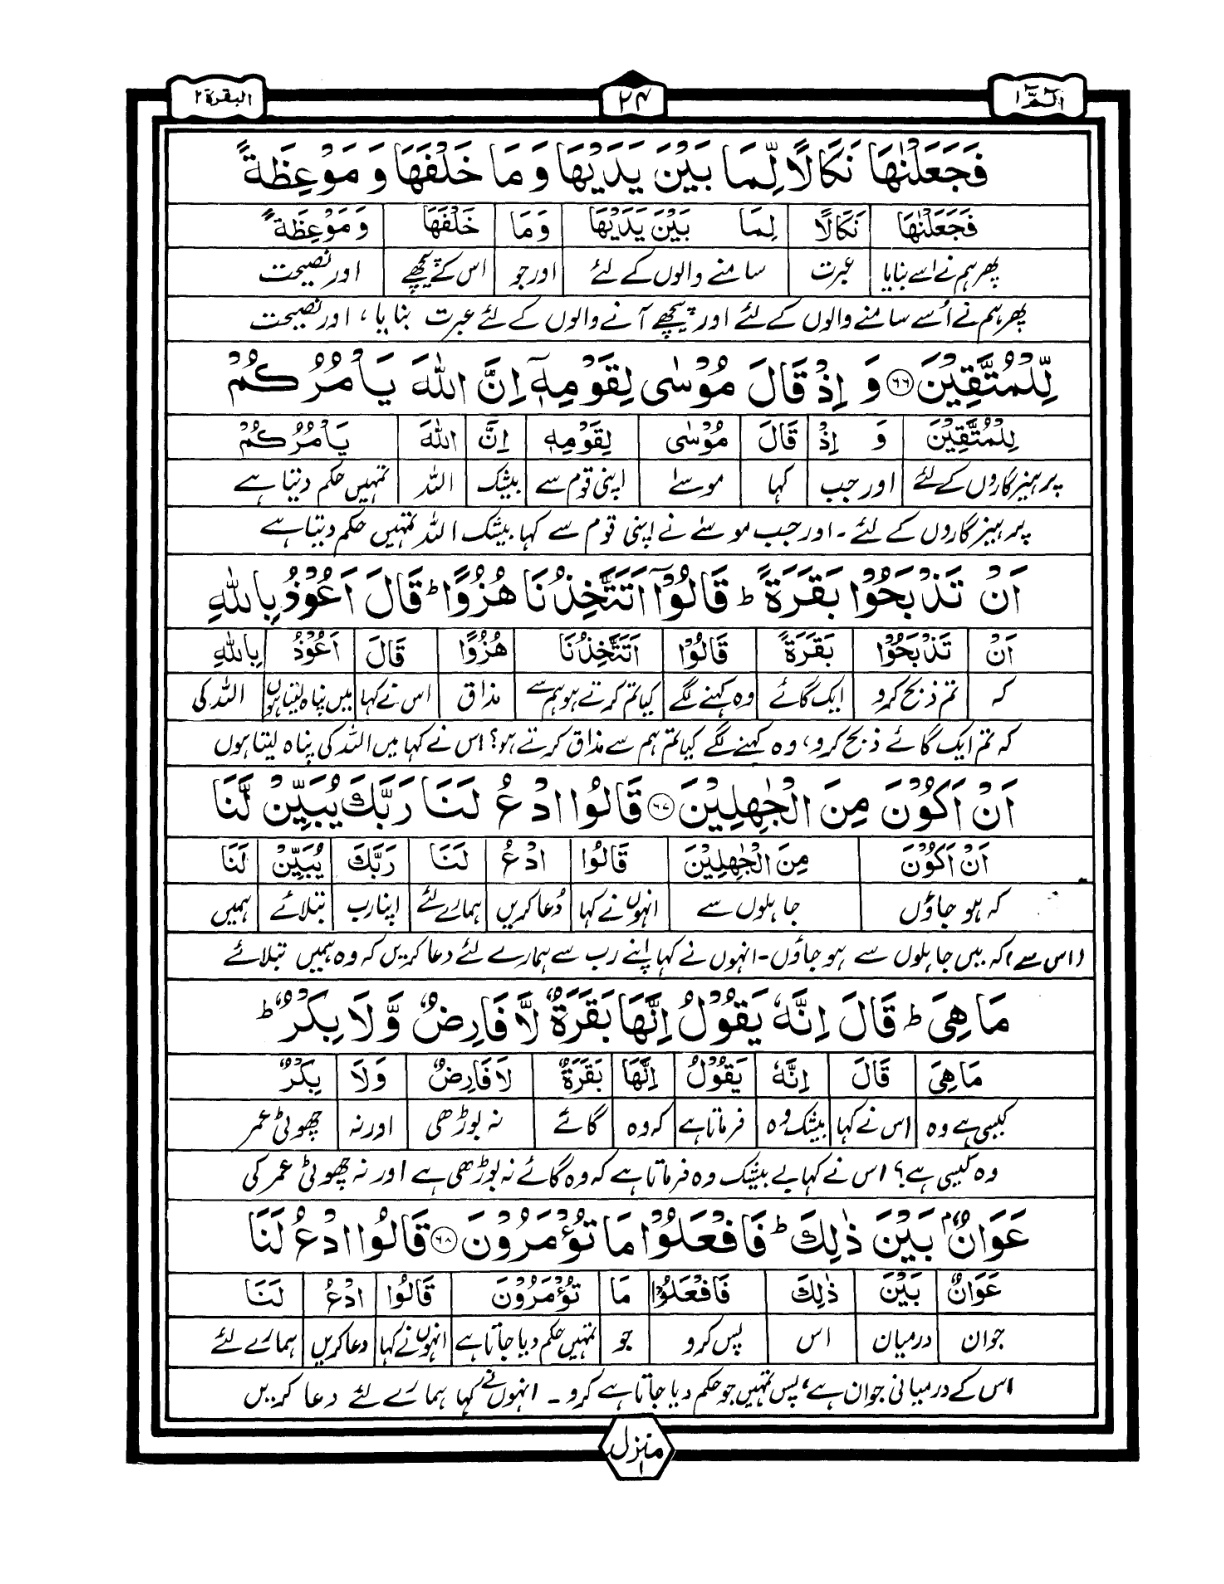 الٓمّٓ ١ ٢٤ البقرة ٢
فَجَعَلْنٰهَا نَكَالًا لِّمَا بَيْنَ يَدَيْهَا وَمَا خَلْفَهَا وَ مَوْعِظَةً
فَجَعَلْنٰهَا نَكَالًا لِمَا بَيْنَ يَدَيْهَا وَمَا خَلْفَهَا وَمَوْعِظَةً
پھر ہم نے اسے بنایا عبرت سامنے والوں کے لئے اور جو اس کے پیچھے اور نصیحت
پھر ہم نے اُسے سامنے والوں کے لئے اور پیچھے آنے والوں کے لئے عبرت بنایا، اور نصیحت
لِّلْمُتَّقِيْنَ ۶۶ وَ اِذْ قَالَ مُوْسٰى لِقَوْمِهٖٓ اِنَّ اللّٰهَ يَاْمُرُكُمْ
لِلْمُتَّقِيْنَ وَ اِذْ قَالَ مُوْسٰى لِقَوْمِهٖ اِنَّ اللّٰهَ يَاْمُرُكُمْ
پرہیزگاروں کے لئے اور جب کہا موسےٰ اپنی قوم سے بیشک اللہ تمہیں حکم دیتا ہے
پرہیزگاروں کے لئے ۔ اور جب موسےٰ نے اپنی قوم سے کہا بیشک اللہ تمہیں حکم دیتا ہے
اَنْ تَذْبَحُوْا بَقَرَةً ؕ قَالُوْٓا اَتَتَّخِذُنَا هُزُوًا ؕ قَالَ اَعُوْذُ بِاللّٰهِ
اَنْ تَذْبَحُوْا بَقَرَةً قَالُوْا اَتَتَّخِذُنَا هُزُوًا قَالَ اَعُوْذُ بِاللّٰهِ
کہ تم ذبح کرو ایک گائے وہ کہنے لگے کیا تم کرتے ہو ہم سے مذاق اس نے کہا میں پناہ لیتا ہوں اللہ کی
کہ تم ایک گائے ذبح کرو، وہ کہنے لگے کیا تم ہم سے مذاق کرتے ہو؟ اس نے کہا میں اللہ کی پناہ لیتا ہوں
اَنْ اَكُوْنَ مِنَ الْجٰهِلِيْنَ ۶۷ قَالُوا ادْعُ لَنَا رَبَّكَ يُبَيِّنْ لَّنَا
اَنْ اَكُوْنَ مِنَ الْجٰهِلِيْنَ قَالُوا ادْعُ لَنَا رَبَّكَ يُبَيِّنْ لَنَا
کہ ہو جاؤں جاہلوں سے انہوں نے کہا دُعا کریں ہمارے لئے اپنا رب بتلائے ہمیں
(اس سے) کہ میں جاہلوں سے ہو جاؤں۔ انہوں نے کہا اپنے رب سے ہمارے لئے دعا کریں کہ وہ ہمیں بتلائے
مَا هِيَ ؕ قَالَ اِنَّهٗ يَقُوْلُ اِنَّهَا بَقَرَةٌ لَّا فَارِضٌ وَّلَا بِكْرٌ ؕ
مَا هِيَ قَالَ اِنَّهٗ يَقُوْلُ اِنَّهَا بَقَرَةٌ لَا فَارِضٌ وَلَا بِكْرٌ
کیسی ہے وہ اس نے کہا بیشک وہ فرماتا ہے کہ وہ گائے نہ بوڑھی اور نہ چھوٹی عمر
وہ کیسی ہے؟ اس نے کہا بے بیشک وہ فرماتا ہے کہ وہ گائے نہ بوڑھی ہے اور نہ چھوٹی عمر کی
عَوَانٌۢ بَيْنَ ذٰلِكَ ؕ فَافْعَلُوْا مَا تُؤْمَرُوْنَ ۶۸ قَالُوا ادْعُ لَنَا
عَوَانٌ بَيْنَ ذٰلِكَ فَافْعَلُوْا مَا تُؤْمَرُوْنَ قَالُوا ادْعُ لَنَا
جوان درمیان اس پس کرو جو تمہیں حکم دیا جاتا ہے انہوں نے کہا دعا کریں ہمارے لئے
اس کے درمیانی جوان ہے، پس تمہیں جو حکم دیا جاتا ہے کرو ۔ انہوں نے کہا ہمارے لئے دعا کریں
منزل ١